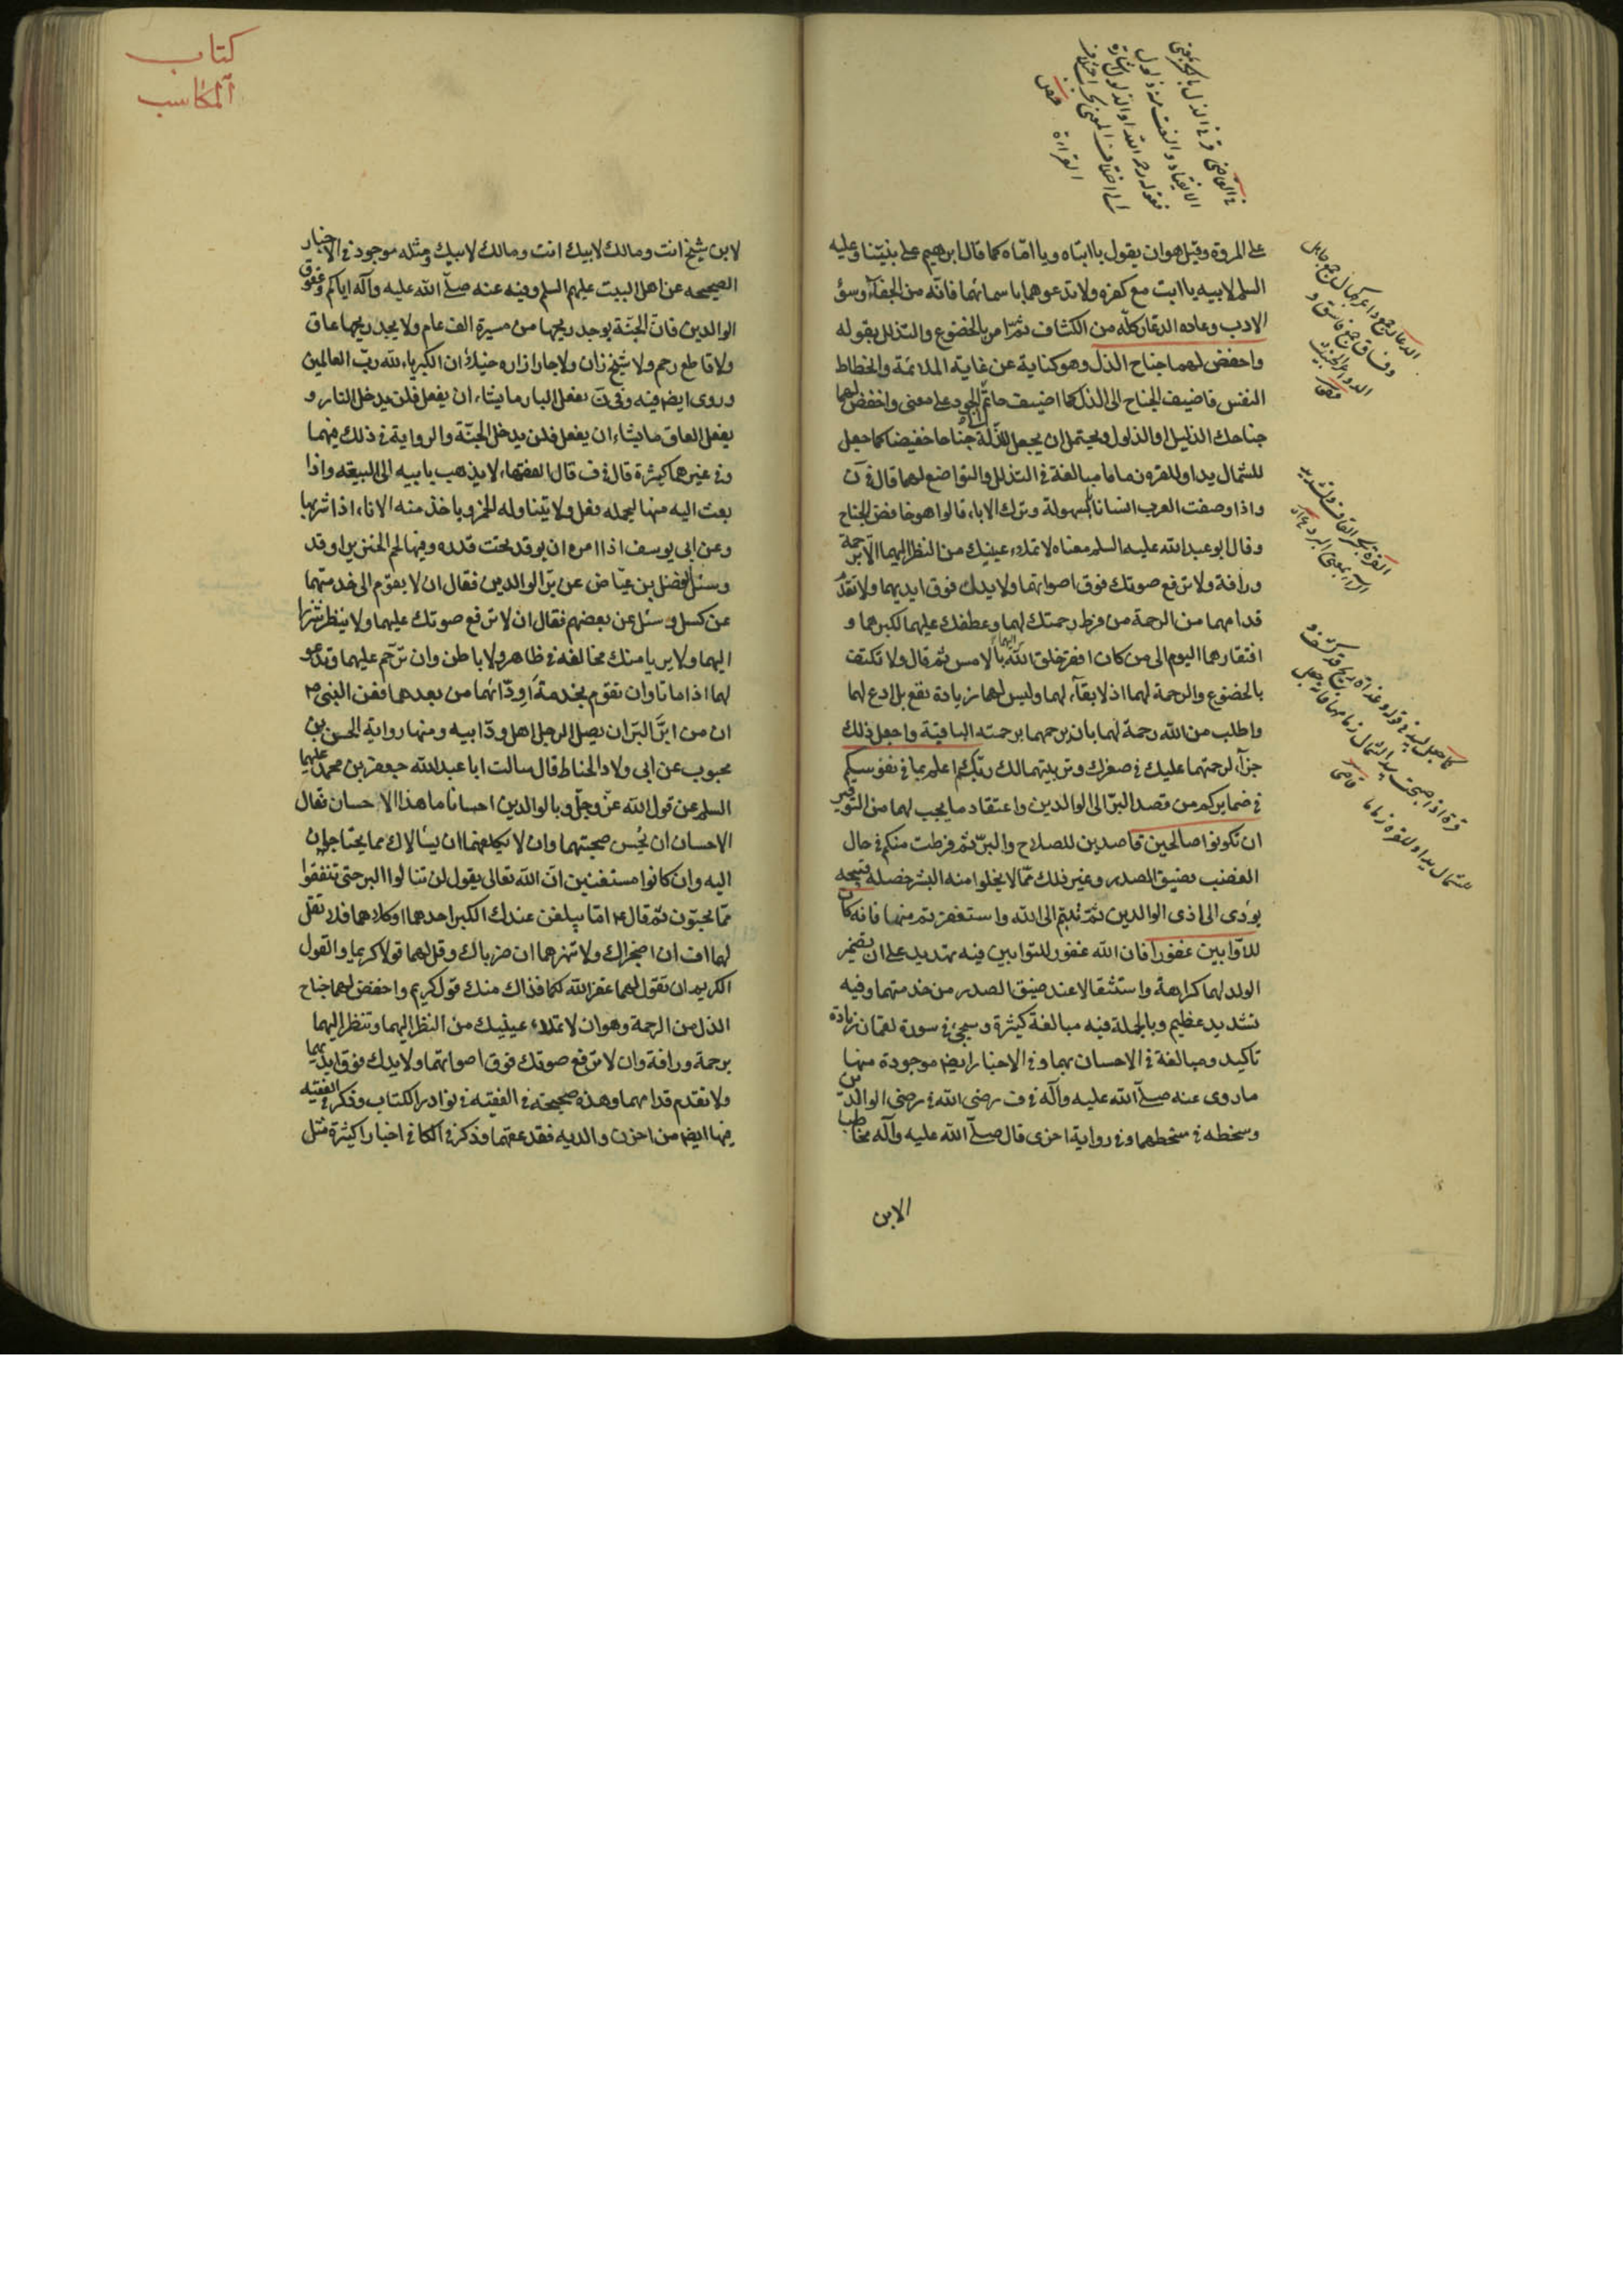 على المروة وقيل هو ان يقول يا ابتاه ويا اماه كما قال ابرهيم على نبينا وعليه
السلم لابيه يا ابت مع كفره ولا تدعوهما باسمائهما فانه من الجفآء وسؤ
الادب وعاده الدعار كله من الكشاف ثم امر بالخضوع والتذلل بقوله
واخفض لهما جناح الذل وهو كناية عن غاية الملائمة وانحطاط
النفس فاضيف الجناح الى الذل كما اضيف حاتم الى الجود على معنى واخفض لهما
جناحك الذليل او الذلول ويحتمل ان يجعل للذلة جناحا خفيضا كما جعل
للشمال يدا وللقره زماما مبالغة في التذلل والتواضع لهما قال في ن
واذا وصفت العرب انسانا بالسهولة وترك الاباء قالوا هو خافض الجناح
وقال ابو عبد الله عليه السلم معناه لا تملاء عينيك من النظر اليهما الا برحمة
ورافة ولا ترفع صوتك فوق اصواتهما ولا يدك فوق ايديهما ولا تقدم
قدامهما من الرحمة من فرط رحمتك لهما وعطفك عليهما لكبرهما و
افتقارهما اليوم الى من كان افقر خلق الله اليهما بالامس ثم قال ولا تكتف
بالخضوع والرحمة لهما اذ لا بقآء لهما وليس لهما زيادة نفع بل ادع لهما
واطلب من الله رحمة لهما بان يرحمهما برحمته الباقية واجعل ذلك
جزآء لرحمتهما عليك في صغرك وتربيتهما لك ربكم اعلم بما في نفوسكم
في ضمايركم من قصد البر الى الوالدين واعتقاد ما يجب لهما من التوقير
ان تكونوا صالحين قاصدين للصلاح والبر ثم فرطت منكم في حال
الغضب بضيق الصدر وغير ذلك مما لا يخلوا منه البشر خصلة قبيحه
يؤدى الى اذى الوالدين ثم تبتم الى الله واستغفرتم منها فانه كان
للاوابين غفورا فان الله غفور للتوابين فيه تهديد على ان يضمر
الولد لهما كراهة واستثقالا عند ضيق الصدر من خدمتهما وفيه
تشديد عظيم وبالجملة فيه مبالغة كثيرة وسيجئ في سورة لقمان زيادة
تاكيد ومبالغة في الاحسان بهما وفي الاخبار ايضا موجودة منها
ما روى عنه صلى الله عليه وآله في ف رضى الله في رضى الوالدين
وسخطه في سخطهما وفي رواية اخرى قال صلى الله عليه وآله مخاطبا
الابن
كتاب
المكاسب
لابن شيخ انت ومالك لابيك انت ومالك لابيك ومثله موجود في الاخبار
الصحيحه عن اهل البيت عليهم السلم وفيه عنه صلى الله عليه وآله اياكم وعقوق
الوالدين فان الجنة يوجد ريحها من مسيرة الف عام ولا يجد ريحها عاق
ولا قاطع رحم ولا شيخ زان ولا جار ازاره خيلاء ان الكبرياء لله رب العالمين
وروى ايضا فيه وفي ن يفعل البار ما يشاء ان يفعل فلن يدخل النار و
يفعل العاق ما يشاء ان يفعل فلن يدخل الجنة والرواية في ذلك فيهما
وفي غيرهما كثيرة قال في ف قال الفقهاء لا يذهب بابيه الى البيعة واذا
بعث اليه منها ليحمله فعل ولا يتناوله الخمر وياخذ منه الاناء اذا شربها
وعن ابى يوسف اذا امره ان يوقد تحت قدره وفيها لحم الخنزير اوقد
وسئل الفضل بن عياض عن بر الوالدين فقال ان لا يقوم الى خدمتهما
عن كسل وسئل عن بعضهم فقال ان لا ترفع صوتك عليهما ولا ينظر شزرا
اليهما ولا يريا منك مخالفة في ظاهر ولا باطن وان ترحم عليهما وتدعو
لهما اذا ماتا وان تقوم بخدمة اودائهما من بعدهما فعن النبى ص
ان من ابر البر ان يصل الرجل اهل ود ابيه ومنها رواية الحسن بن
محبوب عن ابى ولاد الحناط قال سالت ابا عبد الله جعفر بن محمد عليهما
السلم عن قول الله عز وجل وبالوالدين احسانا ما هذا الاحسان فقال
الاحسان ان تحسن صحبتهما وان لا تكلفهما ان يسالاك مما يحتاجان
اليه وان كانوا مستغنيين ان الله تعالى يقول لن تنالوا البر حتى تنفقوا
مما تحبون ثم قال ع اما يبلغن عندك الكبر احدهما او كلاهما فلا تقل
لهما اف ان اضجراك ولا تنهرهما ان ضرباك وقل لهما قولا كريما والقول
الكريم ان تقول لهما غفر الله لكما فذاك منك قول كريم واخفض لهما جناح
الذل من الرحمة وهو ان لا تملاء عينيك من النظر اليهما وتنظر اليهما
برحمة ورافة وان لا ترفع صوتك فوق اصواتهما ولا يدك فوق ايديهما
ولا تقدم قدامهما وهذه صحيحة في الفقيه في نوادر الكتاب وذكر في الفقيه
فيها ايضا من احزن والديه فقد عقهما وذكر في الكافي اخبارا كثيرة مثل